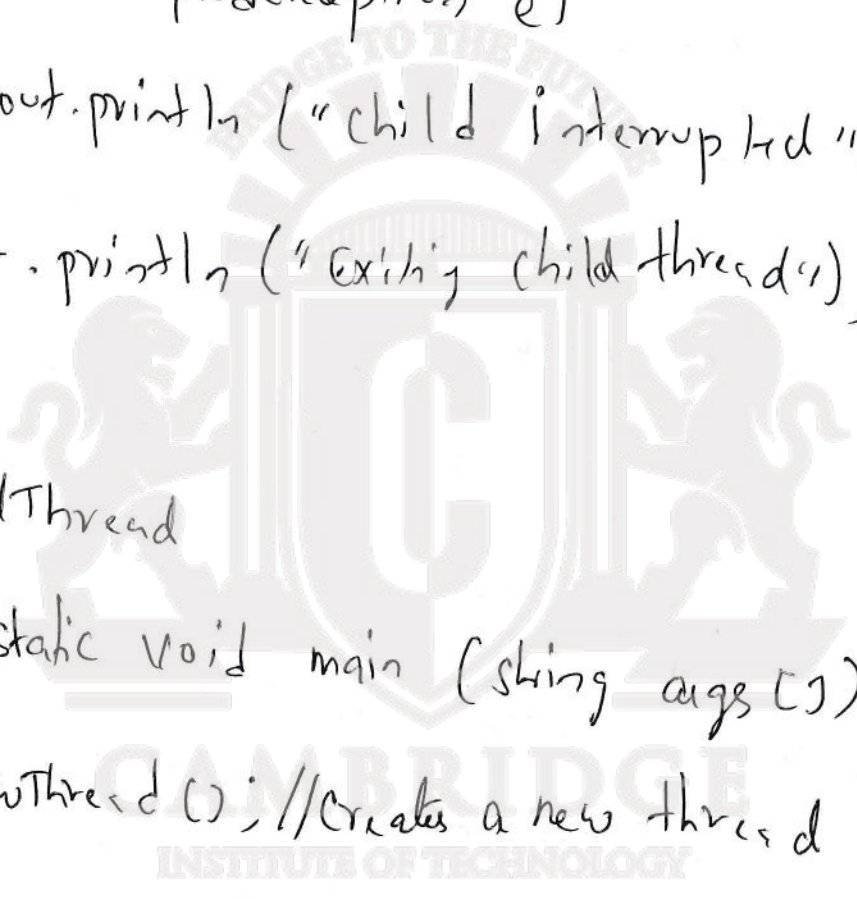 e)
out.println ("Child interrupted"
.println ("Exiting child thread")
Thread
static void main (string args [])
wThread (); //Creates a new thread
BRIDGE TO THE FUTURE
C
CAMBRIDGE
INSTITUTE OF TECHNOLOGY